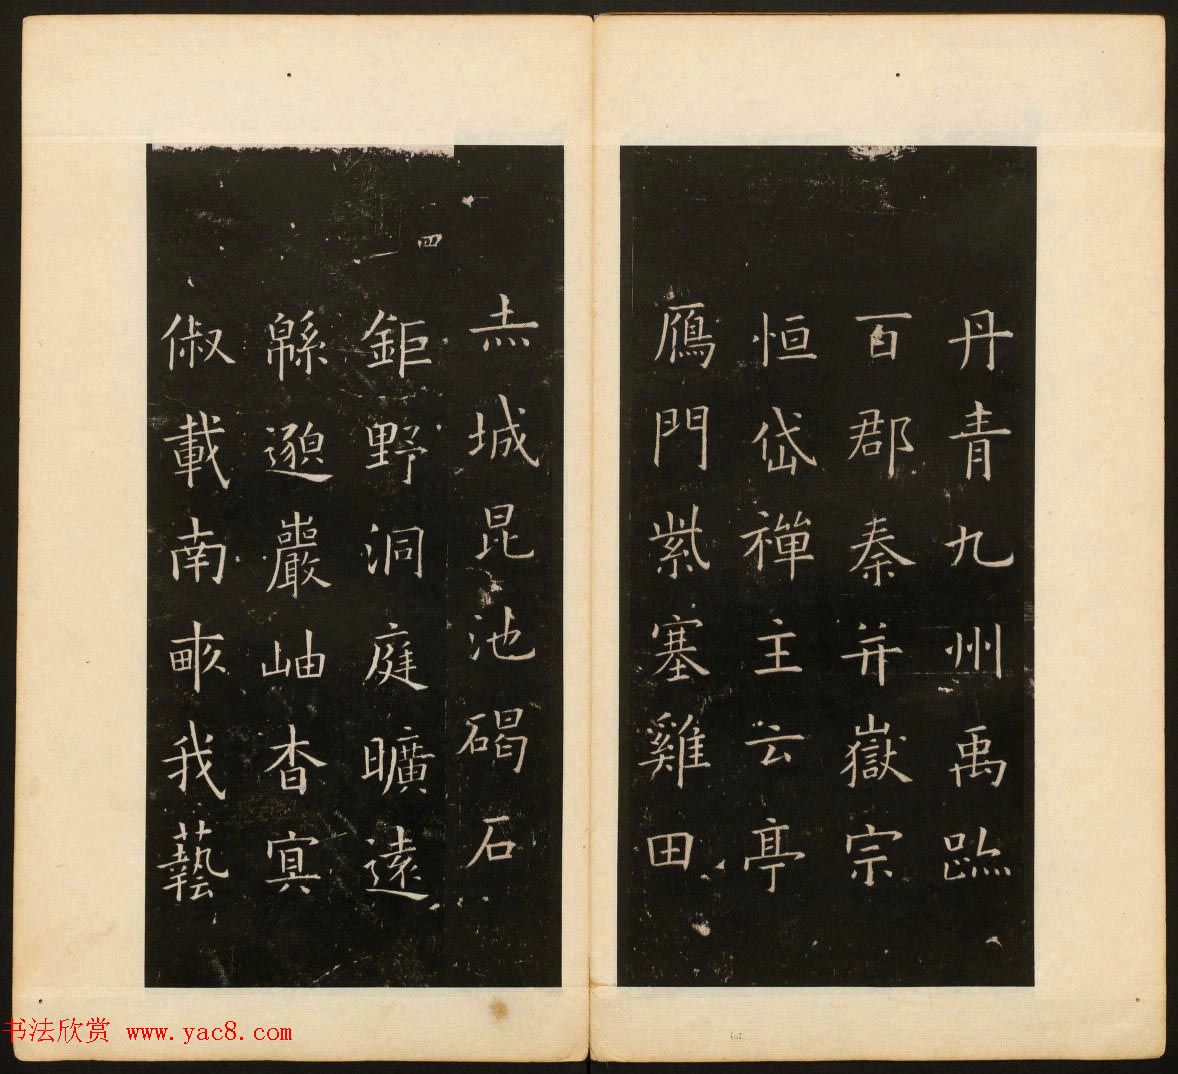 丹青九州禹跡
百郡秦并嶽宗
恒岱禪主云亭
鴈門紫塞雞田
赤城昆池碣石
鉅野洞庭曠遠
緜邈巖岫杳冥
俶載南畝我藝
四
书法欣赏 www.yac8.com